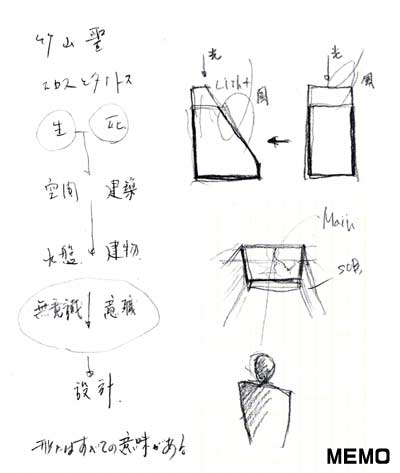 竹山聖
エロスとタナトス
生 死
空間 建築
大盤 建物
無意識 意識
設計
形にはすべての意味がある
光
Light
風
光
風
Main
SUB
MEMO